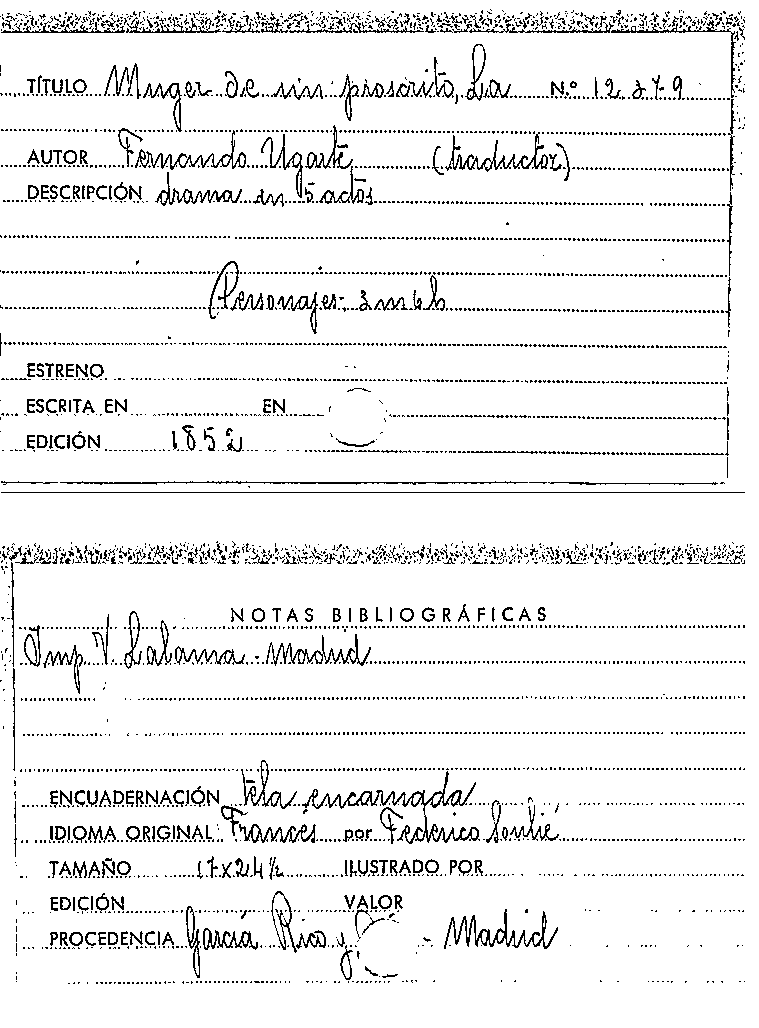 TÍTULO Muger de un proscrito, La N.º 12.279
AUTOR Fernando Ugarte (traductor)
DESCRIPCIÓN drama en 5 actos
Personajes- 3 m 6 h
ESTRENO
ESCRITA EN EN
EDICIÓN 1852
NOTAS BIBLIOGRÁFICAS
Imp. V. Lalama - Madrid
ENCUADERNACIÓN tela encarnada
IDIOMA ORIGINAL Francés por Federico Soulié
TAMAÑO 17x24½ ILUSTRADO POR
EDICIÓN VALOR
PROCEDENCIA García Rico y - Madrid